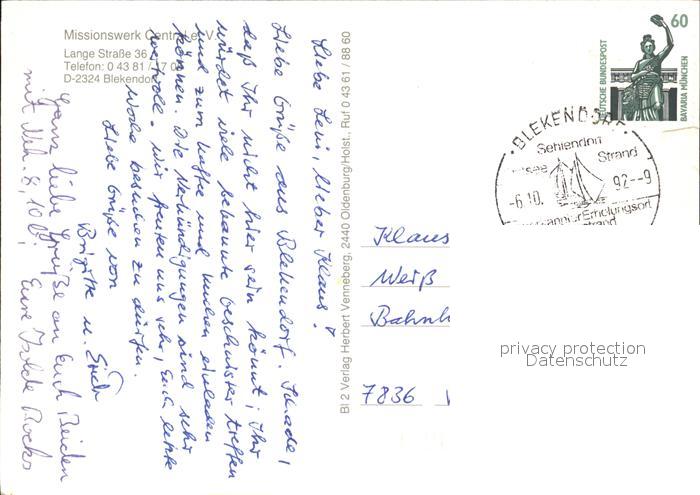 Missionswerk Centrale e.V.
Lange Straße 36
Telefon: 0 43 81 / 17 0
D-2324 Blekendorf
Liebe Leni, lieber Klaus!
Liebe Grüße aus Blekendorf. Schade,
daß Ihr nicht hier sein könnt; Ihr
würdet viele bekannte Geschwister treffen
und zum Kaffee und Kuchen einladen
können. Die Verkündigungen sind sehr
wertvoll. Wir freuen uns sehr, Euch letzte
Woche besuchen zu dürfen.
Liebe Grüße von
Brigitte u. Erich
Ganz liebe Grüße an Euch Beiden
mit Neh. 8, 10b! Eure Isolde Rocks
BI 2 Verlag Herbert Venneberg, 2440 Oldenburg/Holst., Ruf 0 43 61 / 88 60
60
DEUTSCHE BUNDESPOST
BAVARIA MÜNCHEN
BLEKENDORF
Sehlendorf
Ostsee Strand
-6.10. 92--9
Erholungsort
strand
Klaus
Weiß
Bahnh
7836
privacy protection
Datenschutz